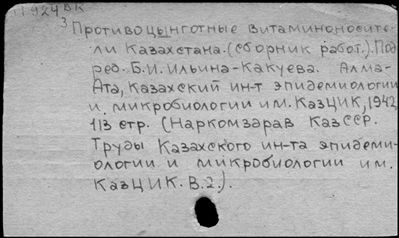 11924БК
3 Противоцынготные витаминоносите-
ли Казахстана. (Сборник работ.). Под
ред. Б.И. Ильина-Какуева. Алма-
Ата, Казахский ин-т эпидемиологии
и микробиологии им. КазЦИК, 1942,
113 стр. (Наркомздрав КазССР.
Труды Казахского ин-та эпидеми-
ологии и микробиологии им.
КазЦИК. В.2.).